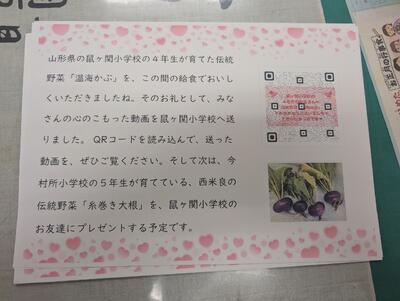 山形県の鼠ヶ関小学校の４年生が育てた伝統
野菜「温海かぶ」を、この間の給食でおいし
くいただきましたね。そのお礼として、みな
さんの心のこもった動画を鼠ヶ関小学校へ送
りました。QRコードを読み込んで、送った
動画を、ぜひご覧ください。そして次は、今
村所小学校の５年生が育てている、西米良の
伝統野菜「糸巻き大根」を、鼠ヶ関小学校の
お友達にプレゼントする予定です。